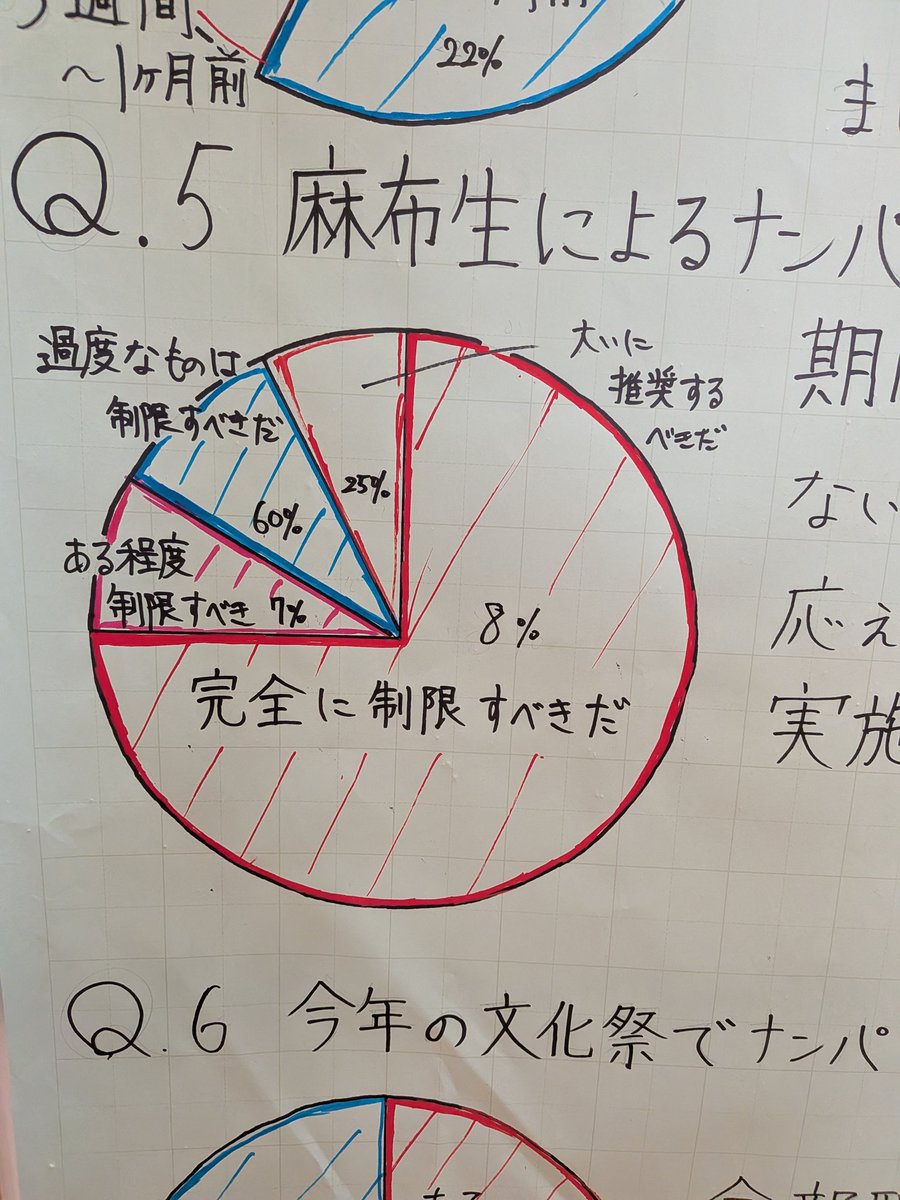 週間、
～1ヶ月前
22%
Q.5 麻布生によるナンパ
過度なものは
制限すべきだ
60%
大いに
推奨する
べきだ
25%
ある程度
制限すべき 7%
8%
完全に制限すべきだ
期
ない
応え
実施
Q.6 今年の文化祭でナンパ